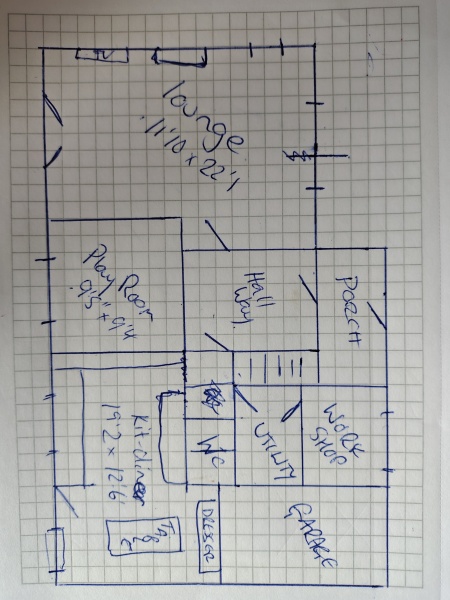 TV
lounge
11'10 x 22'1
Play Room
9'5" x 9'4
Hall
way
PORCH
WORK
SHOP
UTILITY
WC
Kit diner
19'2 x 12'6
TABLE
DRESSER
GARAGE